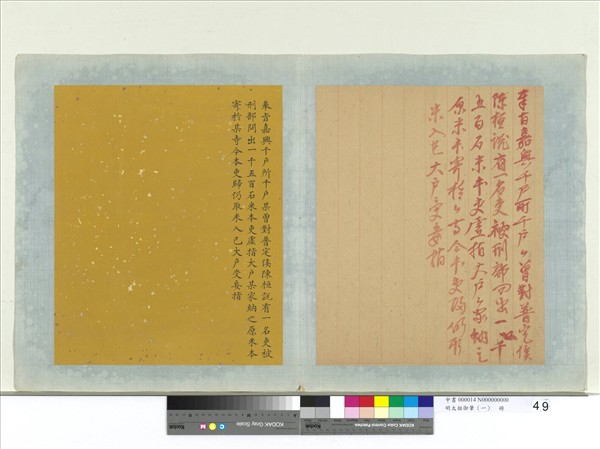 奉旨嘉興千戶所千戶ム曾對普定侯
陳桓說有一名吏被刑部問出一千
五百石米本吏虛指大戶ム家納之
原米本寄於ム寺今本吏歸仍取
米入己大戶受妄指
奉旨嘉興千戶所千戶某曾對普定侯陳桓說有一名吏被
刑部問出一千五百石米本吏虛指大戶某家納之原米本
寄於某寺今本吏歸仍取米入己大戶受妄指
KODAK Gray Scale
C Y M
Kodak
KODAK Color Control Patches
中書000014 N000000000
明太祖御筆(一) 冊
49